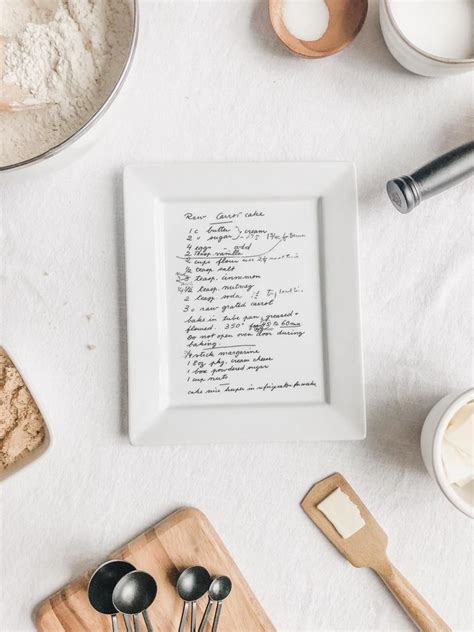 Raw Carrot cake
1 c butter } cream
2 " sugar
4 eggs - add
2 teasp vanilla
2 cups flour
1/2 teasp salt
teasp. cinnamon
teasp. nutmeg
2 teasp soda
3 c raw grated carrot
bake in tube pan, greased +
floured. 350° for 45 to 60 min
Do not open oven door during
baking.
stick margarine
1 8oz pkg. cream cheese
1 box powdered sugar
1 cup nuts
cake in refrigerator